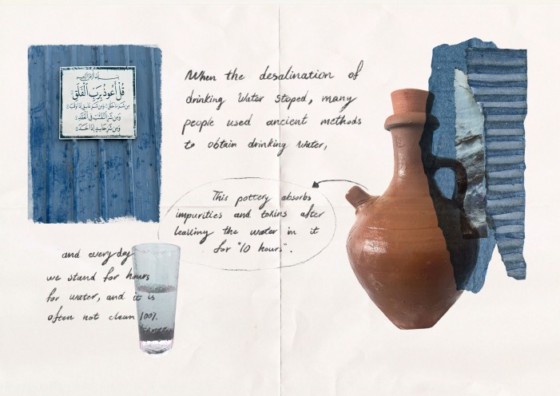 بسم الله الرحمن الرحيم
قل أعوذ برب الفلق
When the desalination of
drinking Water stoped, many
people used ancient methods
to obtain drinking water,
This pottery absorbs
impurities and toxins after
leaving the water in it
for "10 hours".
and everyday
we stand for hours
for water, and it is
often not clean 100%.